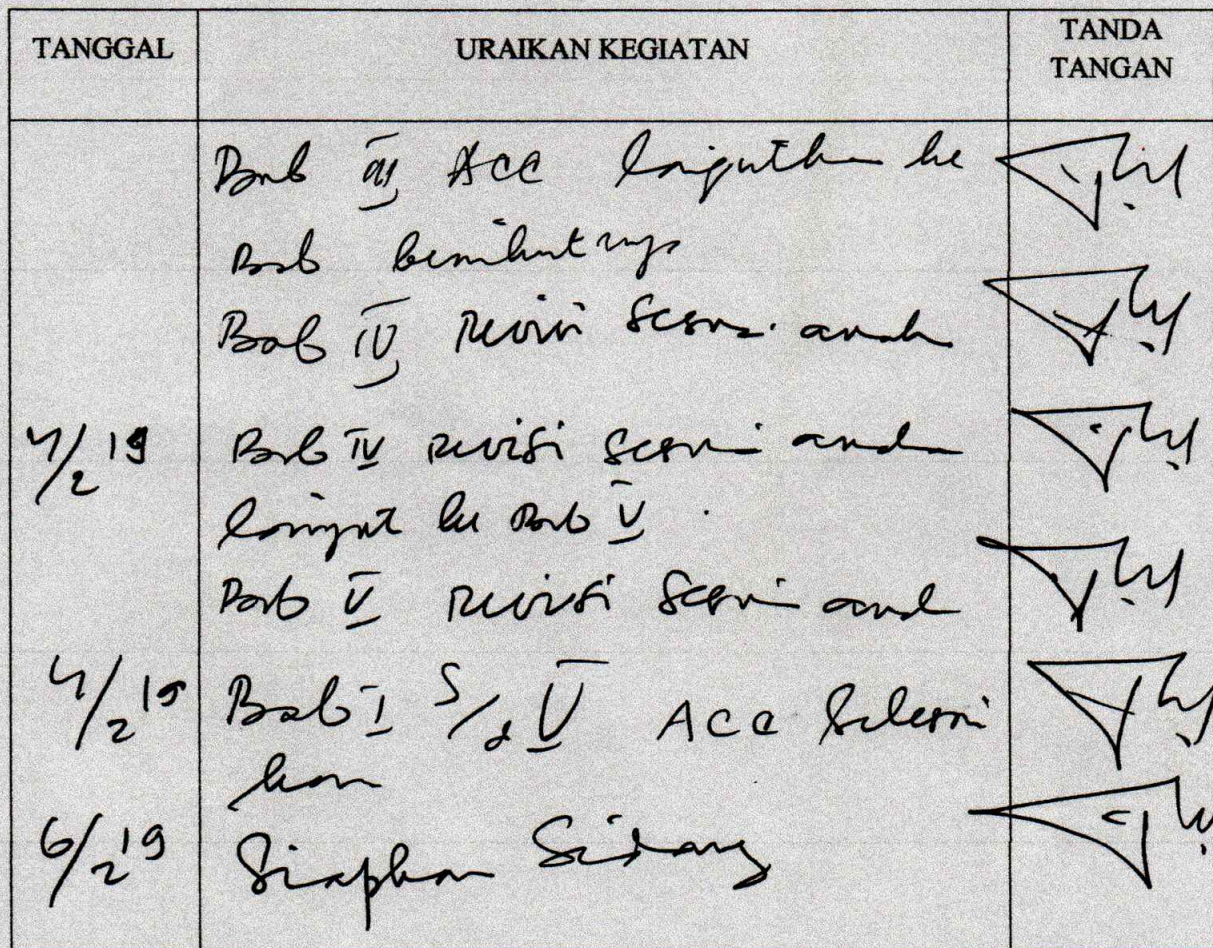 TANGGAL URAIKAN KEGIATAN TANDA TANGAN
Bab III ACC lanjutkan ke
Bab berikutnya
Bab IV Revisi sesuai arah
4/2 19 Bab IV revisi sesuai arah
lanjut ke Bab V.
Bab V revisi sesuai arah
4/2 19 Bab I s/d V ACC Selesai
kan
6/2 19 Siapkan Sidang